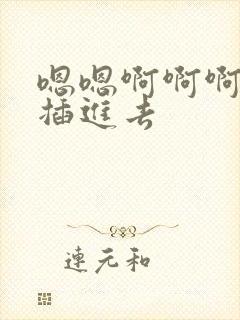 嗯嗯啊啊啊
插進去
連元和